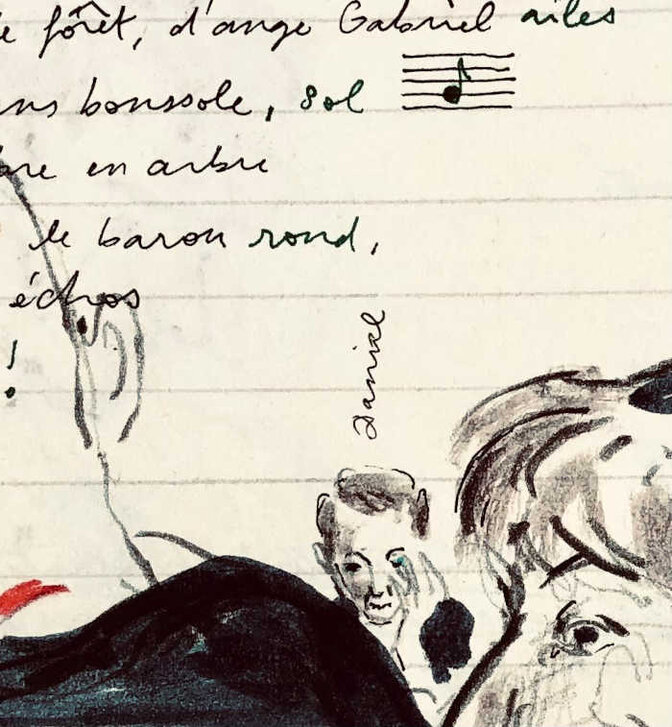 forêt, d'ange Gabriel ailes
ns boussole, sol
re en arbre
le baron rond,
échos
!
Daniel